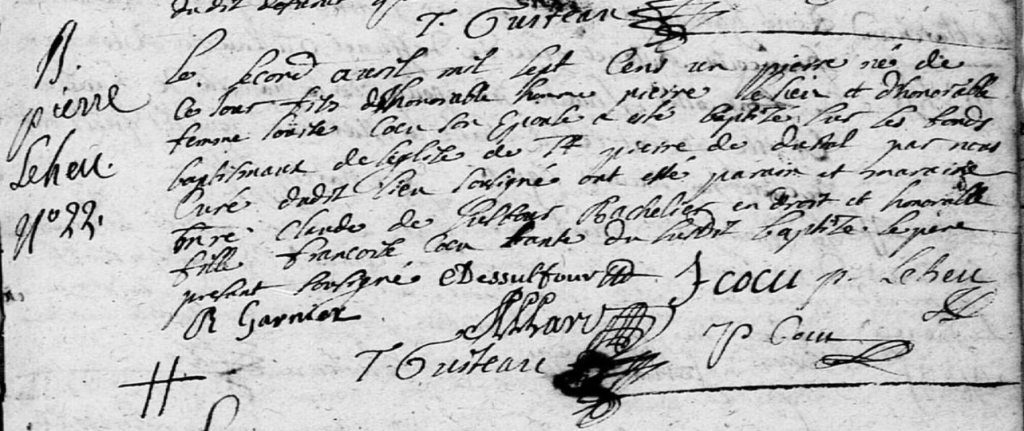 dudit defunt
T. Gusteau
B.
pierre
Leheu.
n° 22.
Le second avril mil sept cens un pierre né de
ce jour fils d'honorable homme pierre leheu et d'honorable
femme louise Cocu son Epouse a esté baptisé sur les fonds
baptismaux de leglise de St pierre de par nous
Curé dudit lieu sousigné ont esté parain et maraine
Claude de Bachelier en Droit et honorable
fille francoise Cocu tante du susdit baptisé. le père
present sousigné CDessulfour fcocu p. Leheu
R Garnier
T. Gusteau p Cocu